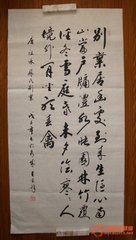 別業居幽處到来生隱心南
山當戶牖澧水映園林竹覆
經冬雪庭昏未夕陰寥寥人
境外閒坐聽春禽
唐祖詠蘇氏別業